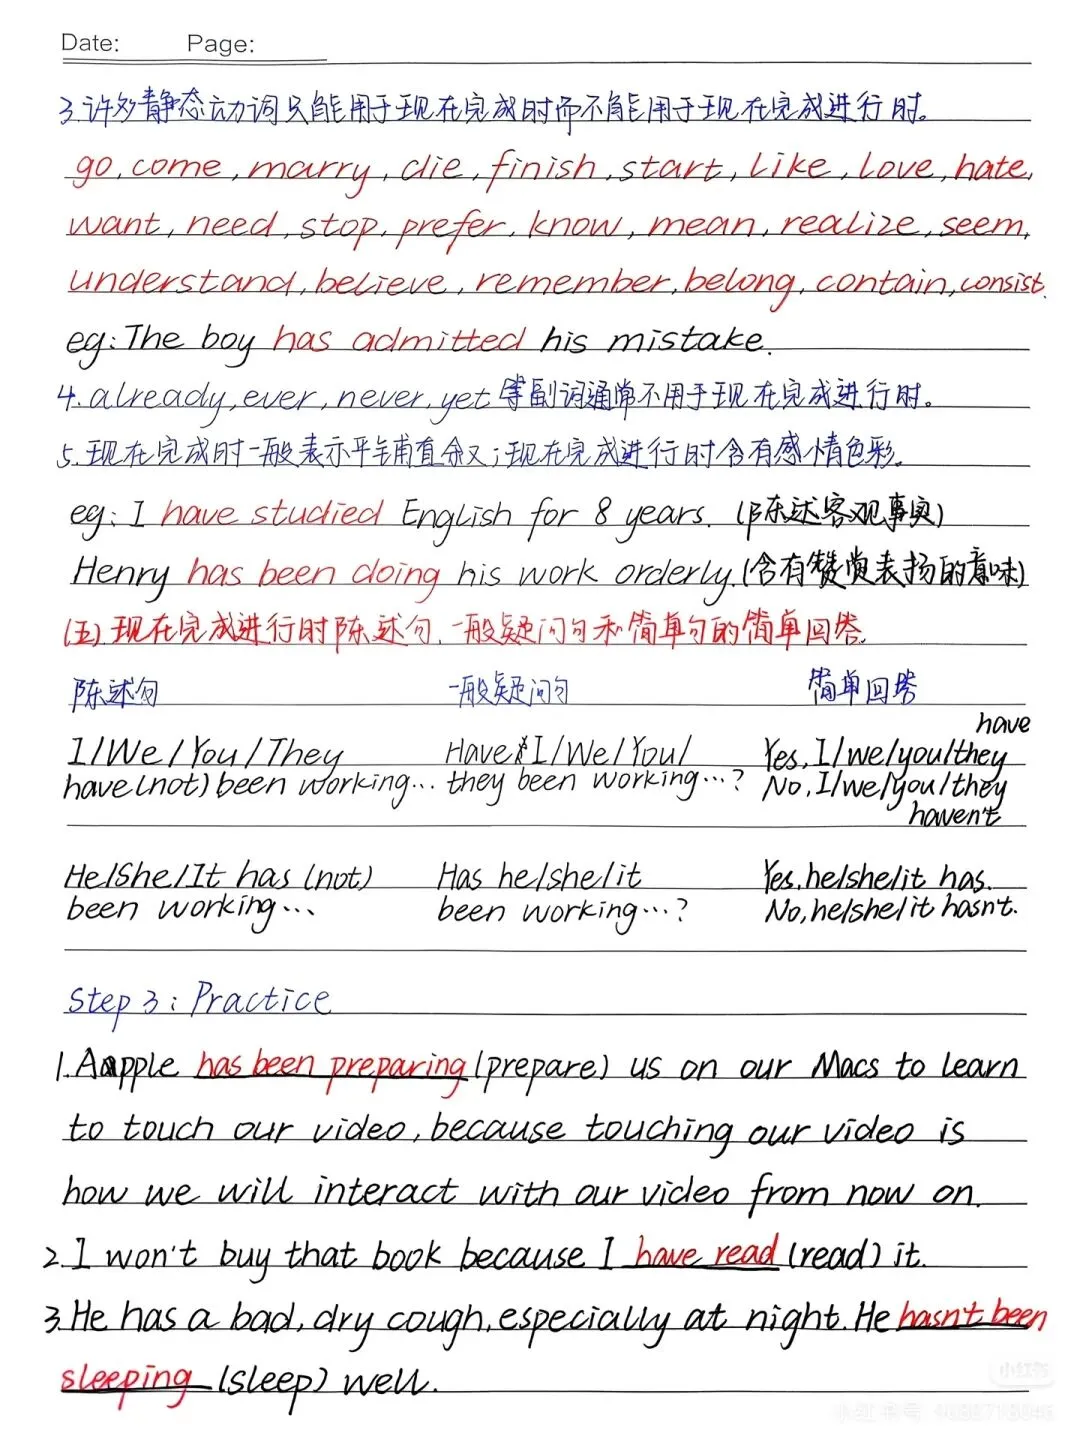 Date: Page:
3.许多静态动词只能用于现在完成时而不能用于现在完成进行时。
go, come, marry, die, finish, start, like, love, hate,
want, need, stop, prefer, know, mean, realize, seem,
understand, believe, remember, belong, contain, consist.
eg: The boy has admitted his mistake.
4. already, ever, never, yet 等副词通常不用于现在完成进行时。
5.现在完成时一般表示平铺直叙;现在完成进行时含有感情色彩。
eg: I have studied English for 8 years. (陈述客观事实)
Henry has been doing his work orderly. (含有赞赏表扬的意味)
(五).现在完成进行时陈述句、一般疑问句和简单句的简单回答.
陈述句 一般疑问句 简单回答
have
I/We/You/They Have I/We/You/ Yes, I/we/you/they
have(not) been working... they been working...? No, I/we/you/they
haven't
He/She/It has (not) Has he/she/it Yes, he/she/it has.
been working... been working...? No, he/she/it hasn't.
Step 3: Practice
1. Apple has been preparing (prepare) us on our Macs to learn
to touch our video, because touching our video is
how we will interact with our video from now on.
2. I won't buy that book because I have read (read) it.
3. He has a bad, dry cough, especially at night. He hasn't been
sleeping (sleep) well.
小红书
小红书号: